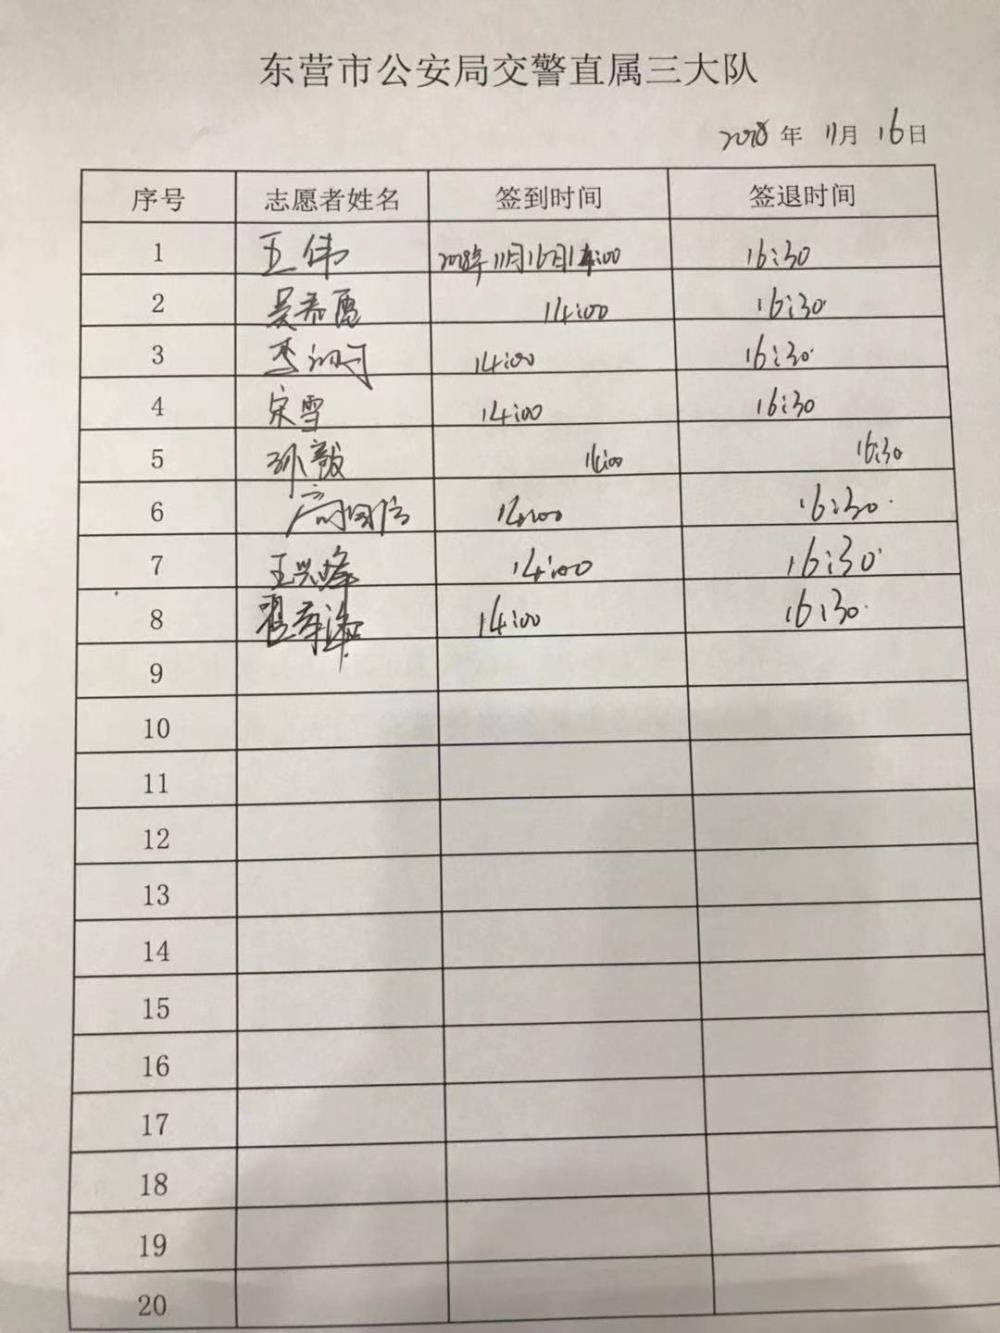 东营市公安局交警直属三大队
2018年 11月 16日
序号 志愿者姓名 签到时间 签退时间
1 王伟 2018年11月16日14:00 16:30
2 吴希雷 14:00 16:30
3 14:00 16:30
4 宋雪 14:00 16:30
5 孙毅 14:00 16:30
6 高国信 14:00 16:30
7 王兴峰 14:00 16:30
8 14:00 16:30
9
10
11
12
13
14
15
16
17
18
19
20